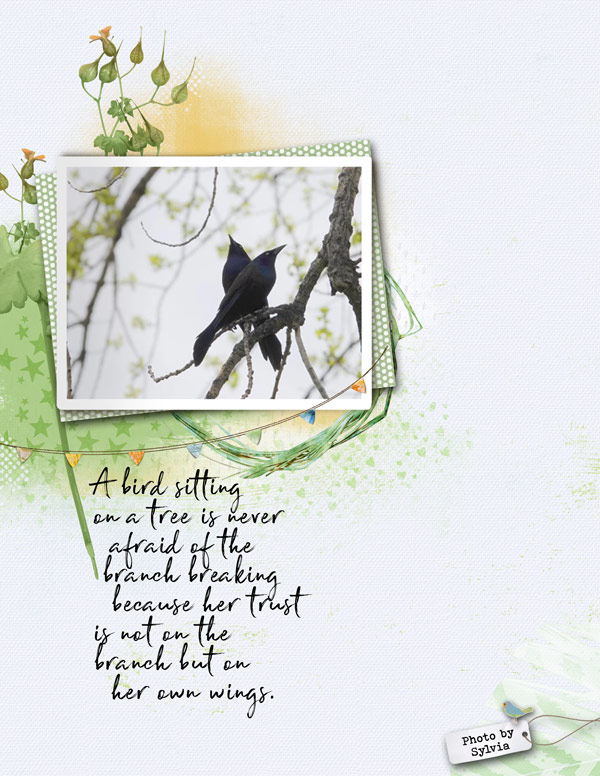 A bird sitting
on a tree is never
afraid of the
branch breaking
because her trust
is not on the
branch but on
her own wings.
Photo by
Sylvia